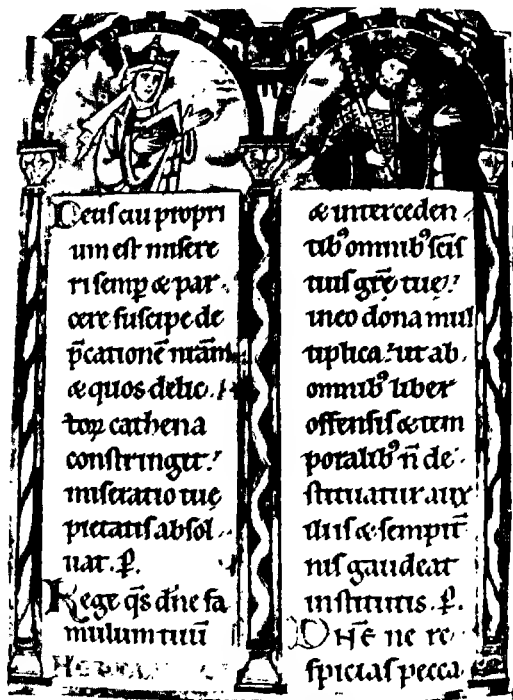 Deus cui propri
um est misere
ri semp & par-
cere suscipe de
p̄cationē nr̄am
& quos delic-
toꝝ cathena
constringit.
miseratio tuę
pietatis absol-
uat. P̣.
Rege q̄s dn̄e fa
mulum tuū
& interceden-
tib⁹ omnib⁹ scīs
tuis grē tuę
in eo dona mul
tiplica. ut ab
omnib⁹ liber
offensis & tem
poralib⁹ n̄ de-
stituatur aux
iliis & sempit̄
nis gaudeat
institutis. P̣.
NE ne re-
spicias pecca